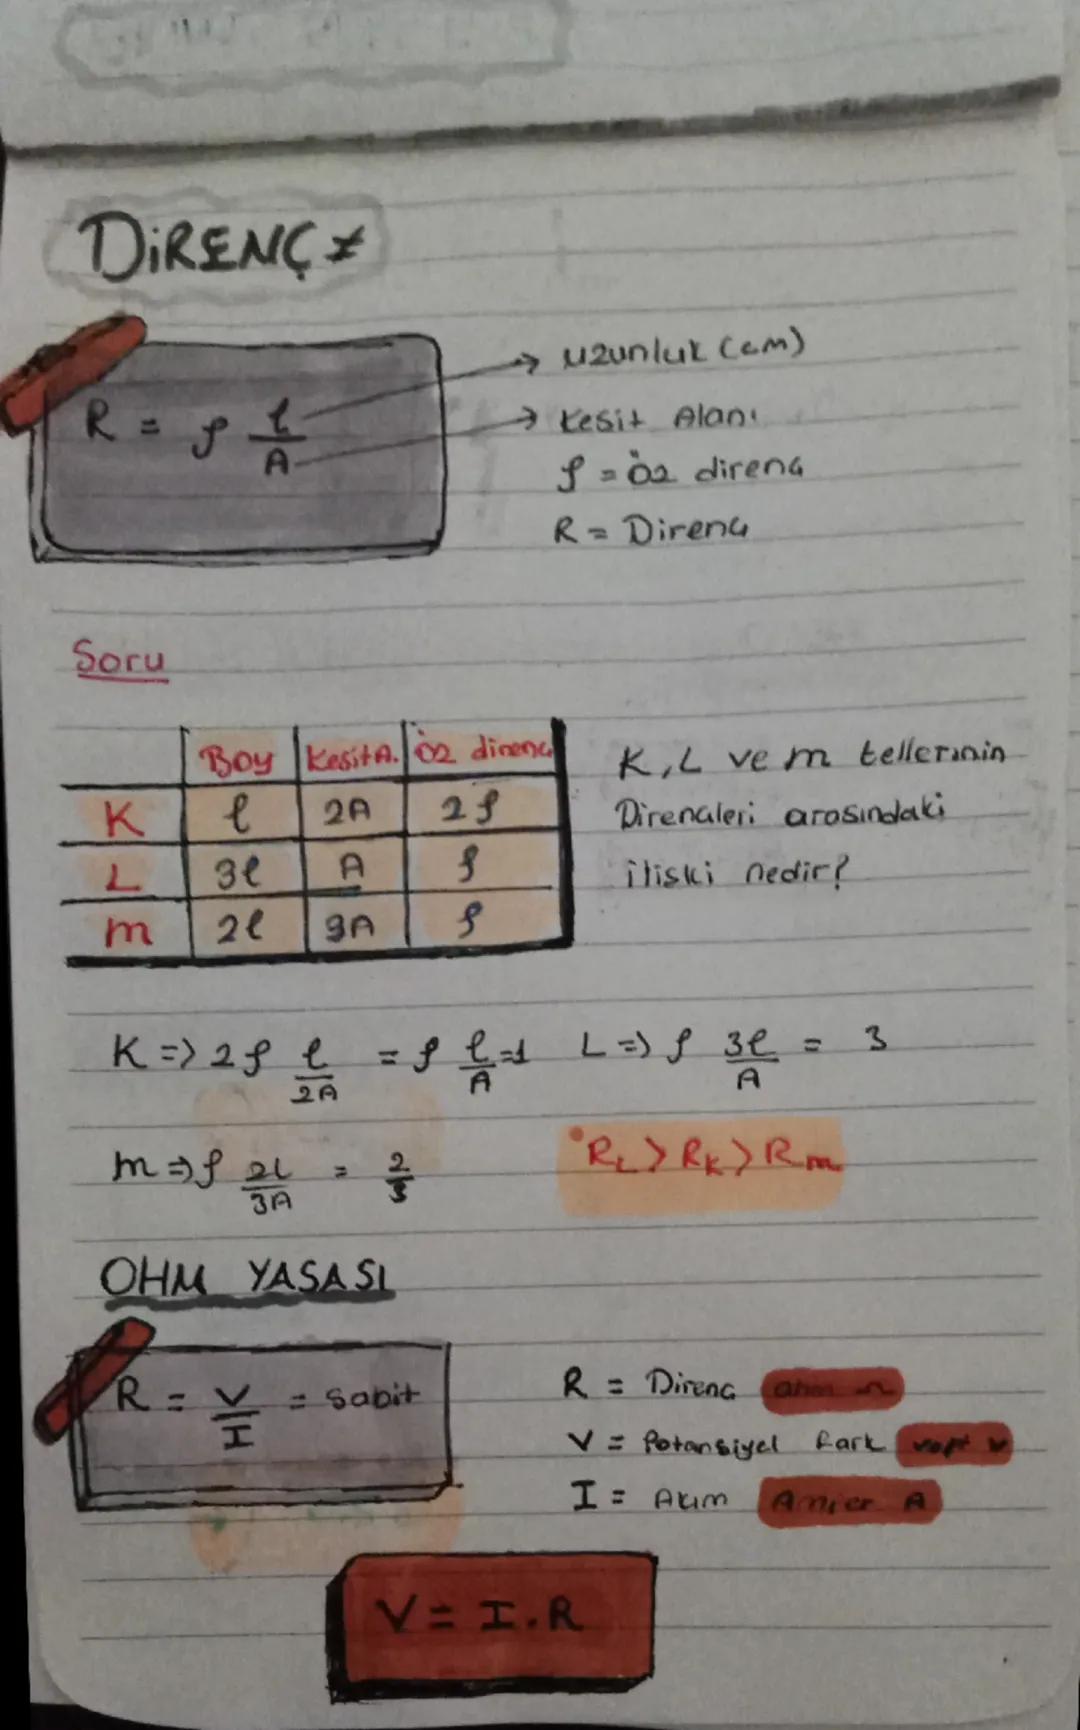 DİRENÇ
R = ρ ℓ/A
→ uzunluk (cm)
→ Kesit Alanı
ρ = Öz direnç
R = Direnç
Soru
Boy | Kesit A. | Öz direnç
K | ℓ | 2A | 2ρ
L | 3ℓ | A | ρ
m | 2ℓ | 3A | ρ
K, L ve m tellerinin
Dirençleri arasındaki
ilişki nedir?
K => 2ρ ℓ/2A = ρ ℓ/A = 1 L => ρ 3ℓ/A = 3
m => ρ 2L/3A = 2/3
R_L > R_K > R_m
OHM YASASI
R = V/I = sabit
R = Direnç ohm Ω
V = Potansiyel fark volt V
I = Akım Amper A
V = I.R